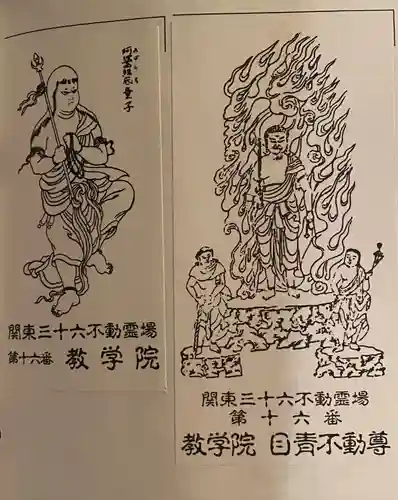 阿婆羅底童子
あばらち
関東三十六不動霊場
第十六番 教学院
関東三十六不動霊場
第十六番
教学院 目青不動尊